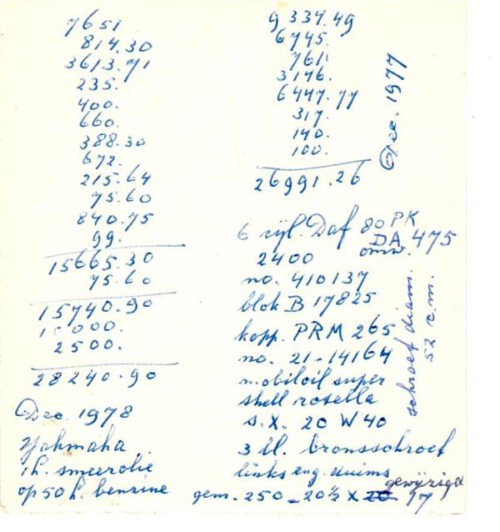 7651
814.30
3613.71
235.
400.
660.
388.30
672.
215.64
75.60
840.75
99.
15665.30
75.60
15740.90
10000.
2500.
28240.90
Dec. 1978
Yahmaha
1 l. smeerolie
op 50 l. benzine
9334.49
6745.
761.
3146.
6447.77
317.
140.
100.
26991.26
Dec. 1977
6 cyl. Daf 80 PK
DA 475
2400 omw.
no. 410137
blok B 17825
kopp. PRM 265
no. 21-14164
mobiloil super
shell rosella
s.x. 20 W 40
3 bl. bronsschroef
links eng. duims
gewijzigd
gem. 250 - 20½ x 20 17
schroef diam.
52 c.m.